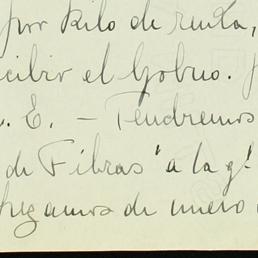 por Kilo de renta,
cibir el Gobno.
. E. — Tendremos
de Fibras" a la g!
de nuevo